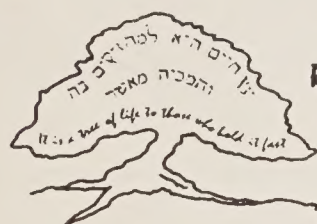 עץ חיים היא למחזיקים בה
ותמכיה מאשר
It is a tree of life to those who hold it fast